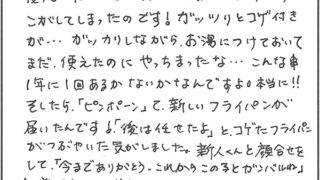 こがしてしまったのです!ガッツリとコゲ付き
が…ガッカリしながら、お湯につけておいて
まだ、使えたのに やっちまったな… こんな事
1年に1回あるかないかなんですよ。本当に!!
そしたら、「ピンポーン」て、新しいフライパンが
届いたんです!「後は任せたよ」と、コゲたフライパン
がつぶやいた気がしました。新人くんと顔合せを
して、「今までありがとう。これからこのコとガンバルね」